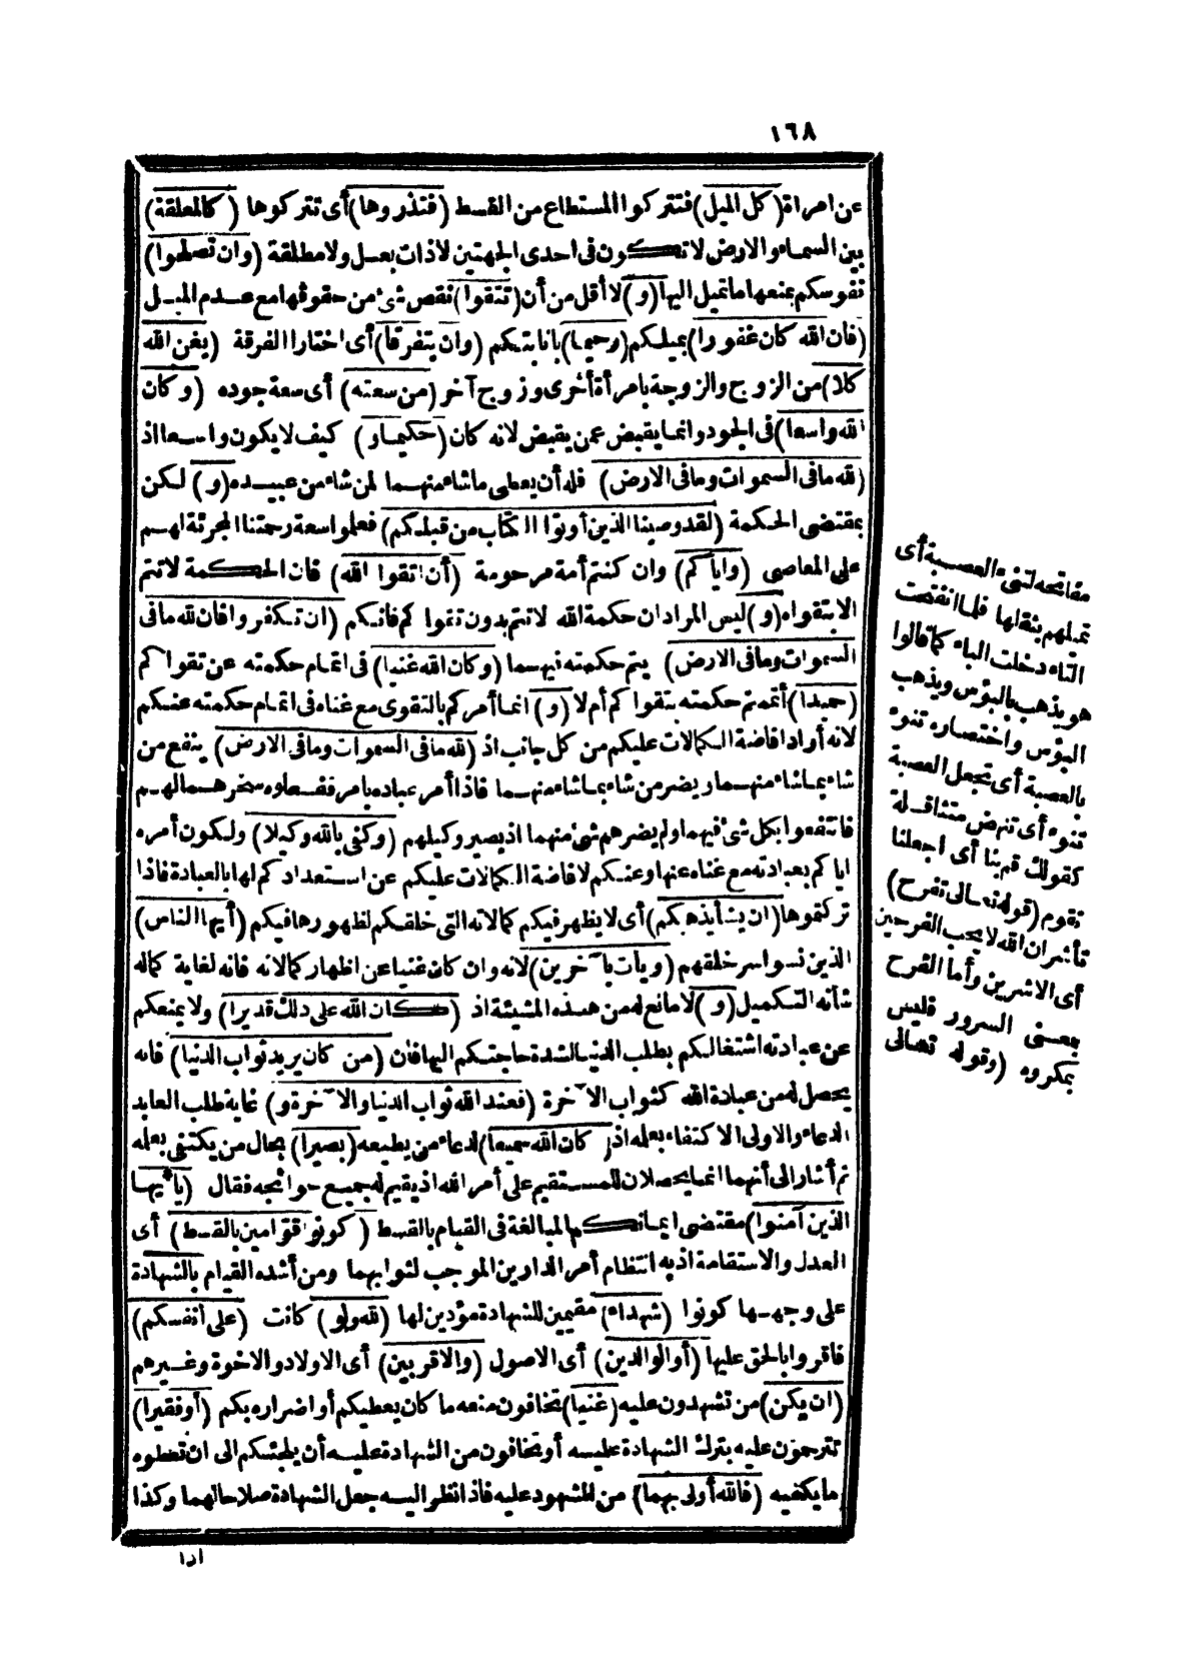 ١٦٨
عن امرأة (كل الميل) فتتركوا المستطاع من القسط (فتذروها) أى تتركوها (كالمعلقة)
بين السماء والارض لا تكون فى احدى الجهتين لا ذات بعل ولا مطلقة (وان تصلحوا)
نفوسكم بمنعها ما تميل اليها (و) لا أقل من أن (تتقوا) نقص شئ من حقوقها مع عدم الميل
(فان الله كان غفورا) بميلكم (رحيما) بانابتكم (وان يتفرقا) أى اختارا الفرقة (يغن الله
كلا) من الزوج والزوجة بامرأة أخرى وزوج آخر (من سعته) أى سعة جوده (وكان
الله واسعا) فى الجود وانما يقبض عمن يقبض لانه كان (حكيما و) كيف لا يكون واسعا اذ
(لله ما فى السموات وما فى الارض) فله أن يعطى ما شاء منهما لمن شاء من عبيده (و) لكن
بمقتضى الحكمة (لقد وصينا الذين أوتوا الكتاب من قبلكم) فعلموا سعة رحمتنا المجرئة لهم
على المعاصى (واياكم) وان كنتم أمة مرحومة (أن اتقوا الله) فان الحكمة لا تتم
الا بتقواه (و) ليس المراد ان حكمة الله لا تتم بدون تقواكم فانكم (ان تكفروا فان لله ما فى
السموات وما فى الارض) يتم حكمته فيهما (وكان الله غنيا) فى اتمام حكمته عن تقواكم
(حميدا) أتمه تم حكمته بتقواكم أم لا (و) انما أمركم بالتقوى مع غناه فى اتمام حكمته عنكم
لانه أراد افاضة الكمالات عليكم من كل جانب اذ (لله ما فى السموات وما فى الارض) ينفع من
شاء بما شاء منهما ويضر من شاء بما شاء منهما فاذا أمر عباده بامر ففعلوه سخرهما لهم
فانتفعوا بكل شئ فيهما ولم يضرهم شئ منهما اذ يصير وكيلهم (وكفى بالله وكيلا) ولكون أمره
اياكم بعبادته مع غناه عنها وعنكم لافاضة الكمالات عليكم عن استعدادكم لها بالعبادة فاذا
تركتموها (ان يشأ يذهبكم) أى لا يظهر فيكم كمالاته التى خلقكم لظهورها فيكم (أيها الناس)
الذين نسوا سر خلقهم (ويأت بآخرين) لانه وان كان غنيا عن اظهار كمالاته فانه لغاية كماله
شأنه التكميل (و) لا مانع له من هذه المشيئة اذ (كان الله على ذلك قديرا) ولا يمنعكم
عن عبادته اشتغالكم بطلب الدنيا لشدة حاجتكم اليها فان (من كان يريد ثواب الدنيا) فانه
يحصل له من عبادة الله كثواب الآخرة (فعند الله ثواب الدنيا والآخرة و) غاية طلب العابد
الدعاء والاولى الاكتفاء بعلمه اذ (كان الله سميعا) لدعاء من يطيعه (بصيرا) بحال من يكتفى بعلمه
ثم أشار الى أنهما انما يحصلان للمستقيم على أمر الله اذ يقيم له جميع حوائجه فقال (يا أيها
الذين آمنوا) مقتضى ايمانكم المبالغة فى القيام بالقسط (كونوا قوامين بالقسط) أى
العدل والاستقامة اذ به انتظام أمر الدارين الموجب لثوابهما ومن أشده القيام بالشهادة
على وجهها كونوا (شهداء) مقيمين للشهادة مؤدين لها (لله ولو) كانت (على أنفسكم)
فاقروا بالحق عليها (أو الوالدين) أى الاصول (والاقربين) أى الاولاد والاخوة وغيرهم
(ان يكن) من تشهدون عليه (غنيا) تخافون منعه ما كان يعطيكم أو اضراره بكم (أو فقيرا)
تترحمون عليه بترك الشهادة عليه أو تخافون من الشهادة عليه أن يلجئكم الى ان تعطوه
ما يكفيه (فالله أولى بهما) من المشهود عليه فاذا نظر اليه جعل الشهادة صلاحا لهما وكذا
اذا
مفاتحه لتنىء العصبة أى
تميلهم بثقلها فلما انفتحت
التاء دخلت الباء كما قالوا
هو يذهب بالبؤس ويذهب
البؤس واختصاره تنوء
بالعصبة أى تجعل العصبة
تنوء أى تنهض متثاقلة
كقولك قم بنا أى اجعلنا
نقوم (قوله تعالى تفرح)
تأشر ان الله لا يحب الفرحين
أى الاشرين وأما الفرح
بمعنى السرور فليس
بمكروه (وقوله تعالى